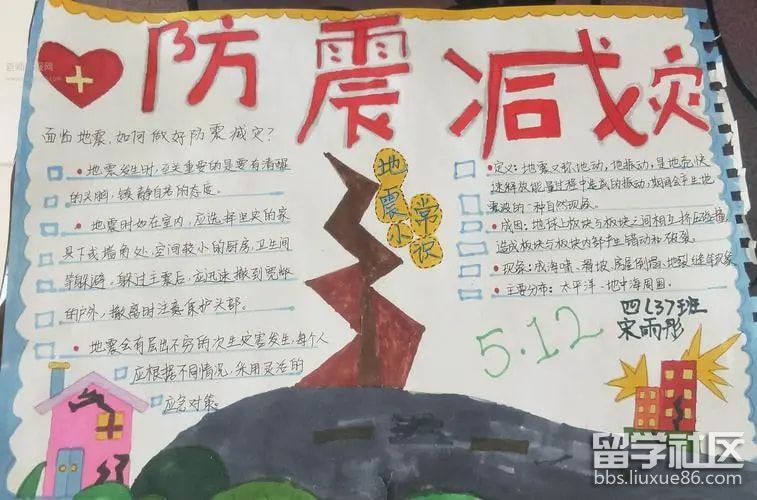 防震减灾
面临地震,如何做好防震减灾?
·地震发生时,至关重要的是要有清醒
的头脑,镇静自若的态度。
·地震时如在室内,应选择坚实的家
具下或墙角处,空间较小的厨房,卫生间
等躲避。躲过主震后,应迅速撤到宽敞
的户外,撤离时注意保护头部。
·地震会有层出不穷的次生灾害发生,每个人
应根据不同情况,采用灵活的
应急对策。
地震小常识
·定义:地震又称地动,地振动,是地壳快
速释放能量过程中造成的振动,期间会产生地
震波的一种自然现象。
·成因:地球上板块与板块之间相互挤压碰撞
造成板块与板块内部产生错动和破裂。
·现象:或海啸、滑坡、房屋倒塌、地裂缝等现象
·主要分布:太平洋、地中海周围。
四(3)班
宋雨彤
5.12
留学社区
bbs.liuxue86.com